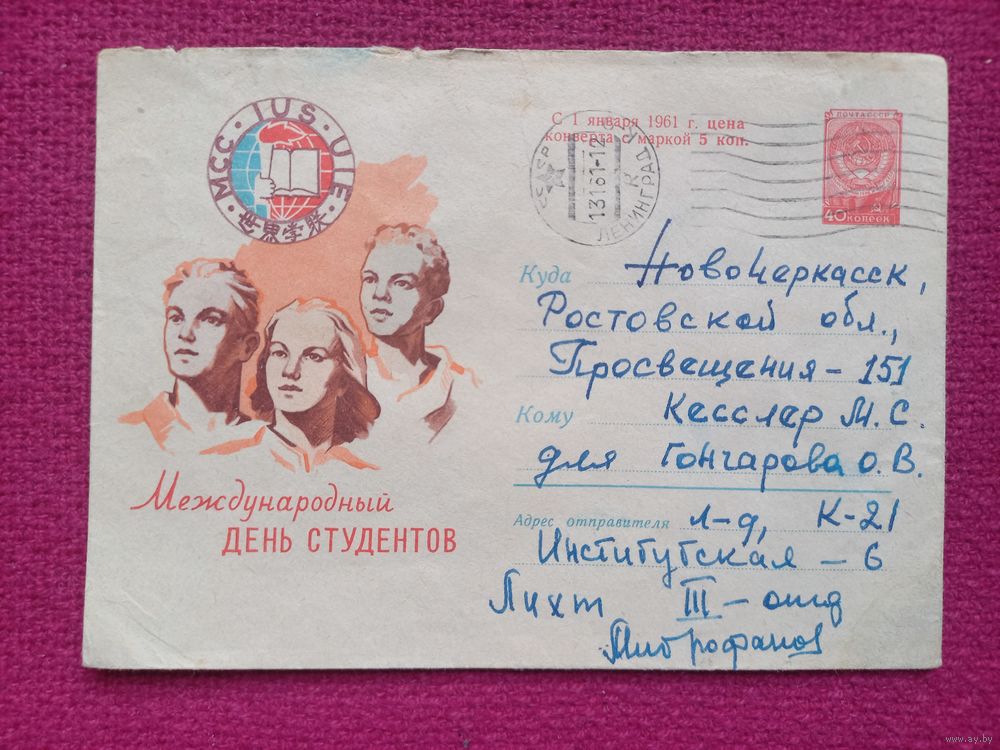 МСС · IUS · UIE ·
世界学联
С 1 января 1961 г. цена
конверта с маркой 5 коп.
ПОЧТА СССР
40 КОПЕЕК
СССР
ЛЕНИНГРАД
Куда Новочеркасск,
Ростовской обл.,
Просвещения – 151
Кому Кесслер М. С.
для Гончарова О. В.
Адрес отправителя Л-д, К-21
Институтская – 6
Лихт III – отд
Митрофанов
Международный
ДЕНЬ СТУДЕНТОВ
www.ay.by